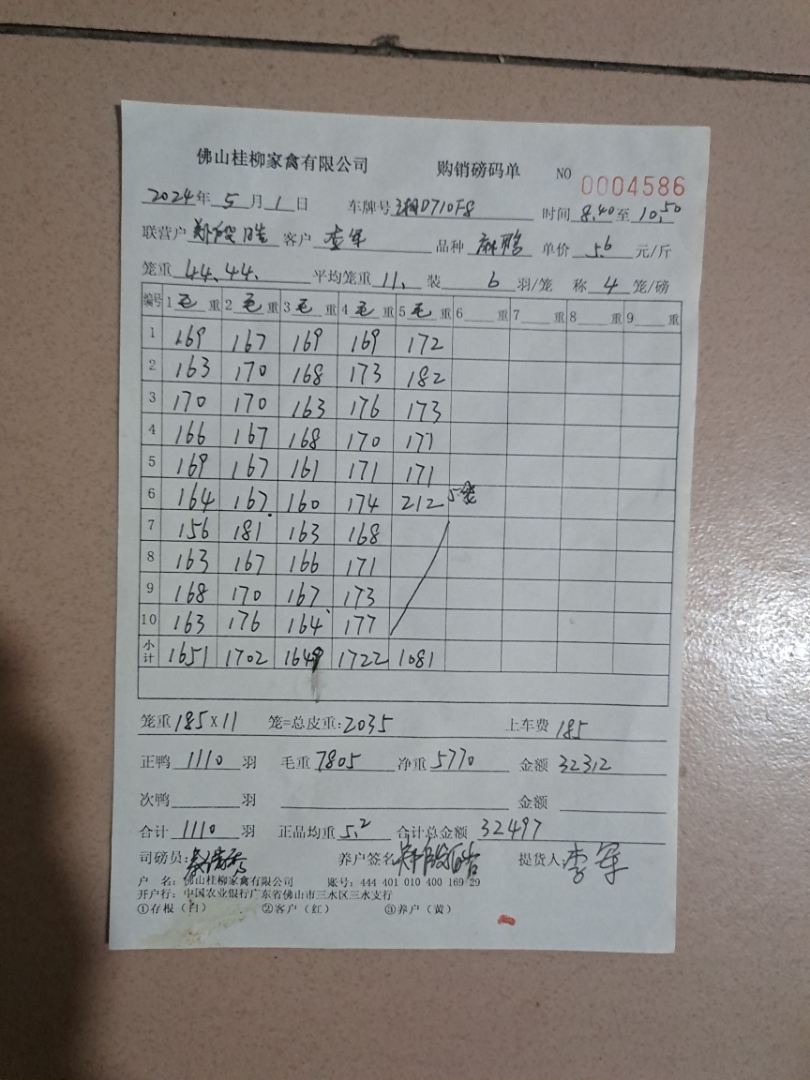 佛山桂柳家禽有限公司 购销磅码单 NO 0004586
2024年 5月 1日 车牌号 湘D710F8 时间 8.40至 10.50
联营户 客户 李军 品种 麻鸭 单价 5.6 元/斤
笼重 44.44. 平均笼重 11. 装 6 羽/笼 称 4 笼/磅
编号 1 毛 重 2 毛 重 3 毛 重 4 毛 重 5 毛 重 6 重 7 重 8 重 9 重
1 169 167 169 169 172
2 163 170 168 173 182
3 170 170 163 176 173
4 166 167 168 170 171
5 169 167 161 171 171
6 164 167 160 174 212 5笼
7 156 181 163 168
8 163 167 166 171
9 168 170 167 173
10 163 176 164 177
小计 1651 1702 1649 1722 1081
笼重 185×11 笼=总皮重:2035 上车费 185
正鸭 1110 羽 毛重 7805 净重 5770 金额 32312
次鸭 羽 金额
合计 1110 羽 正品均重 5.2 合计总金额 32497
司磅员: 养户签名 提货人: 李军
户 名: 佛山桂柳家禽有限公司 账号: 444 401 010 400 169 29
开户行: 中国农业银行广东省佛山市三水区三水支行
①存根（白） ②客户（红） ③养户（黄）